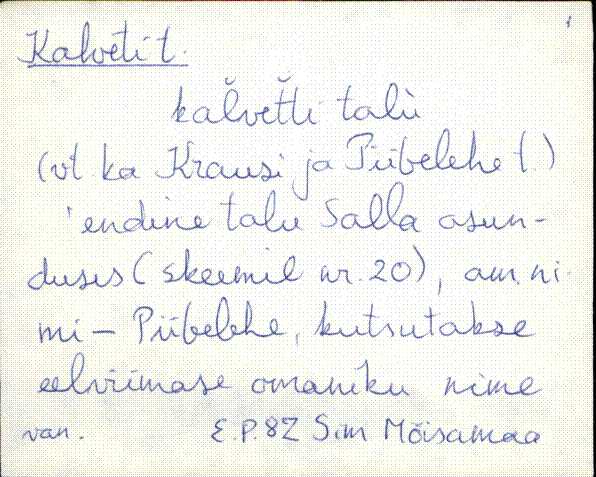 Kalveti t.
kǎlvet̆ti talù
(vt. ka Krausi ja Piibelehe t.)
'endine talu Salla asun-
duses (skeemil nr. 20), am. ni-
mi – Piibelehe, kutsutakse
eelviimase omaniku nime
van. E.P.82 Sim Mõisamaa